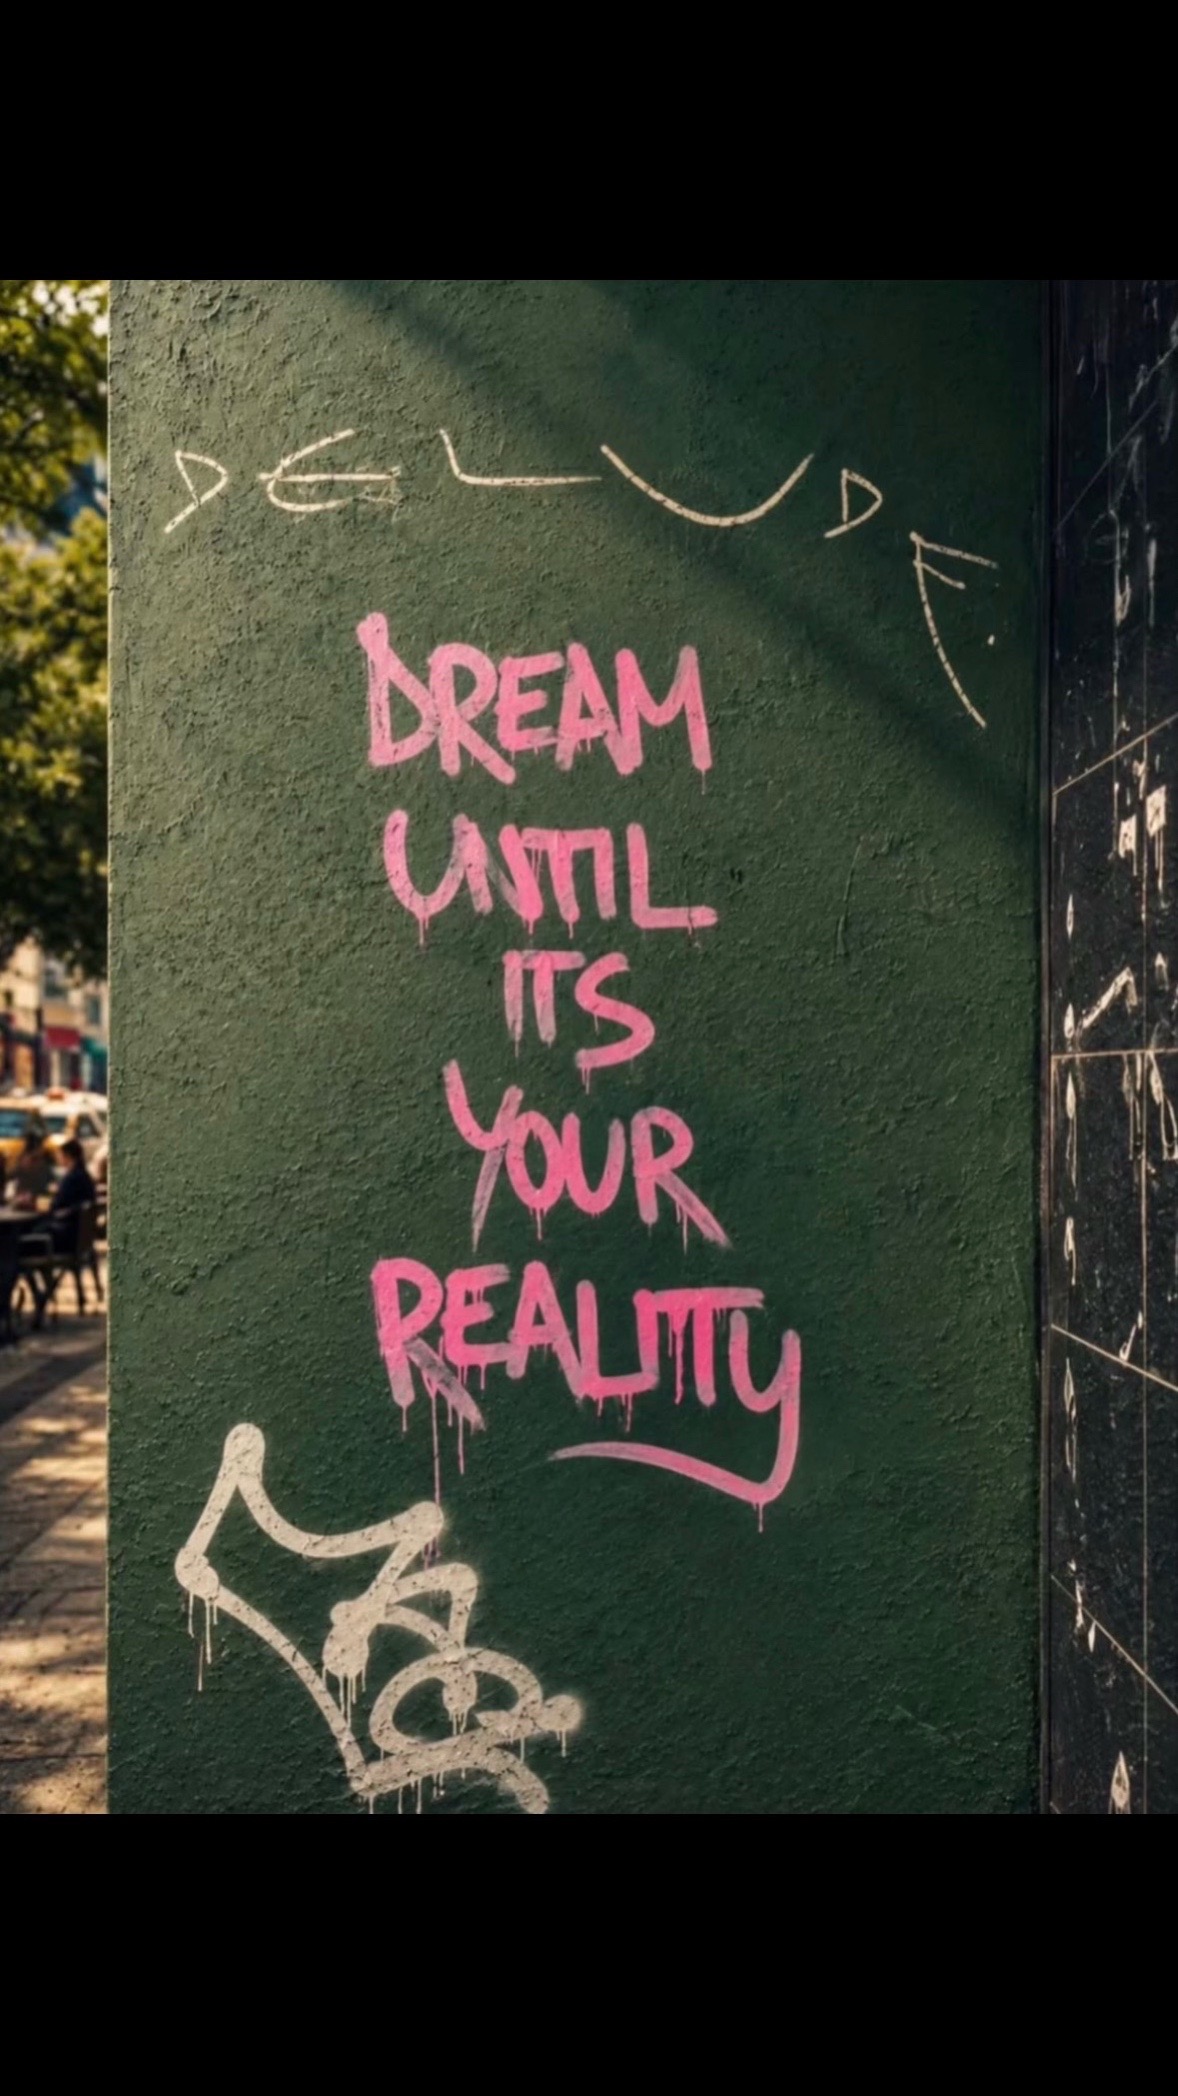 DELUDE
DREAM
UNTIL
ITS
YOUR
REALITY